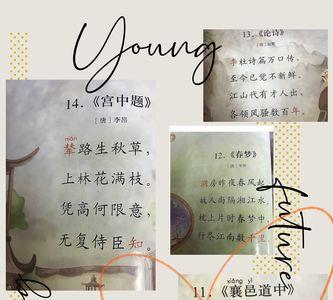 Young
14.《宫中题》
［唐］李昂
niǎn
辇路生秋草，
上林花满枝。
凭高何限意，
无复侍臣知。
13.《论诗》
李杜诗篇万口传，
至今已觉不新鲜。
江山代有才人出，
各领风骚数百年。
12.《春梦》
洞房昨夜春风起，
故人尚隔湘江水。
枕上片时春梦中，
行尽江南数千里。
future
xiāng yì
11.《襄邑道中》